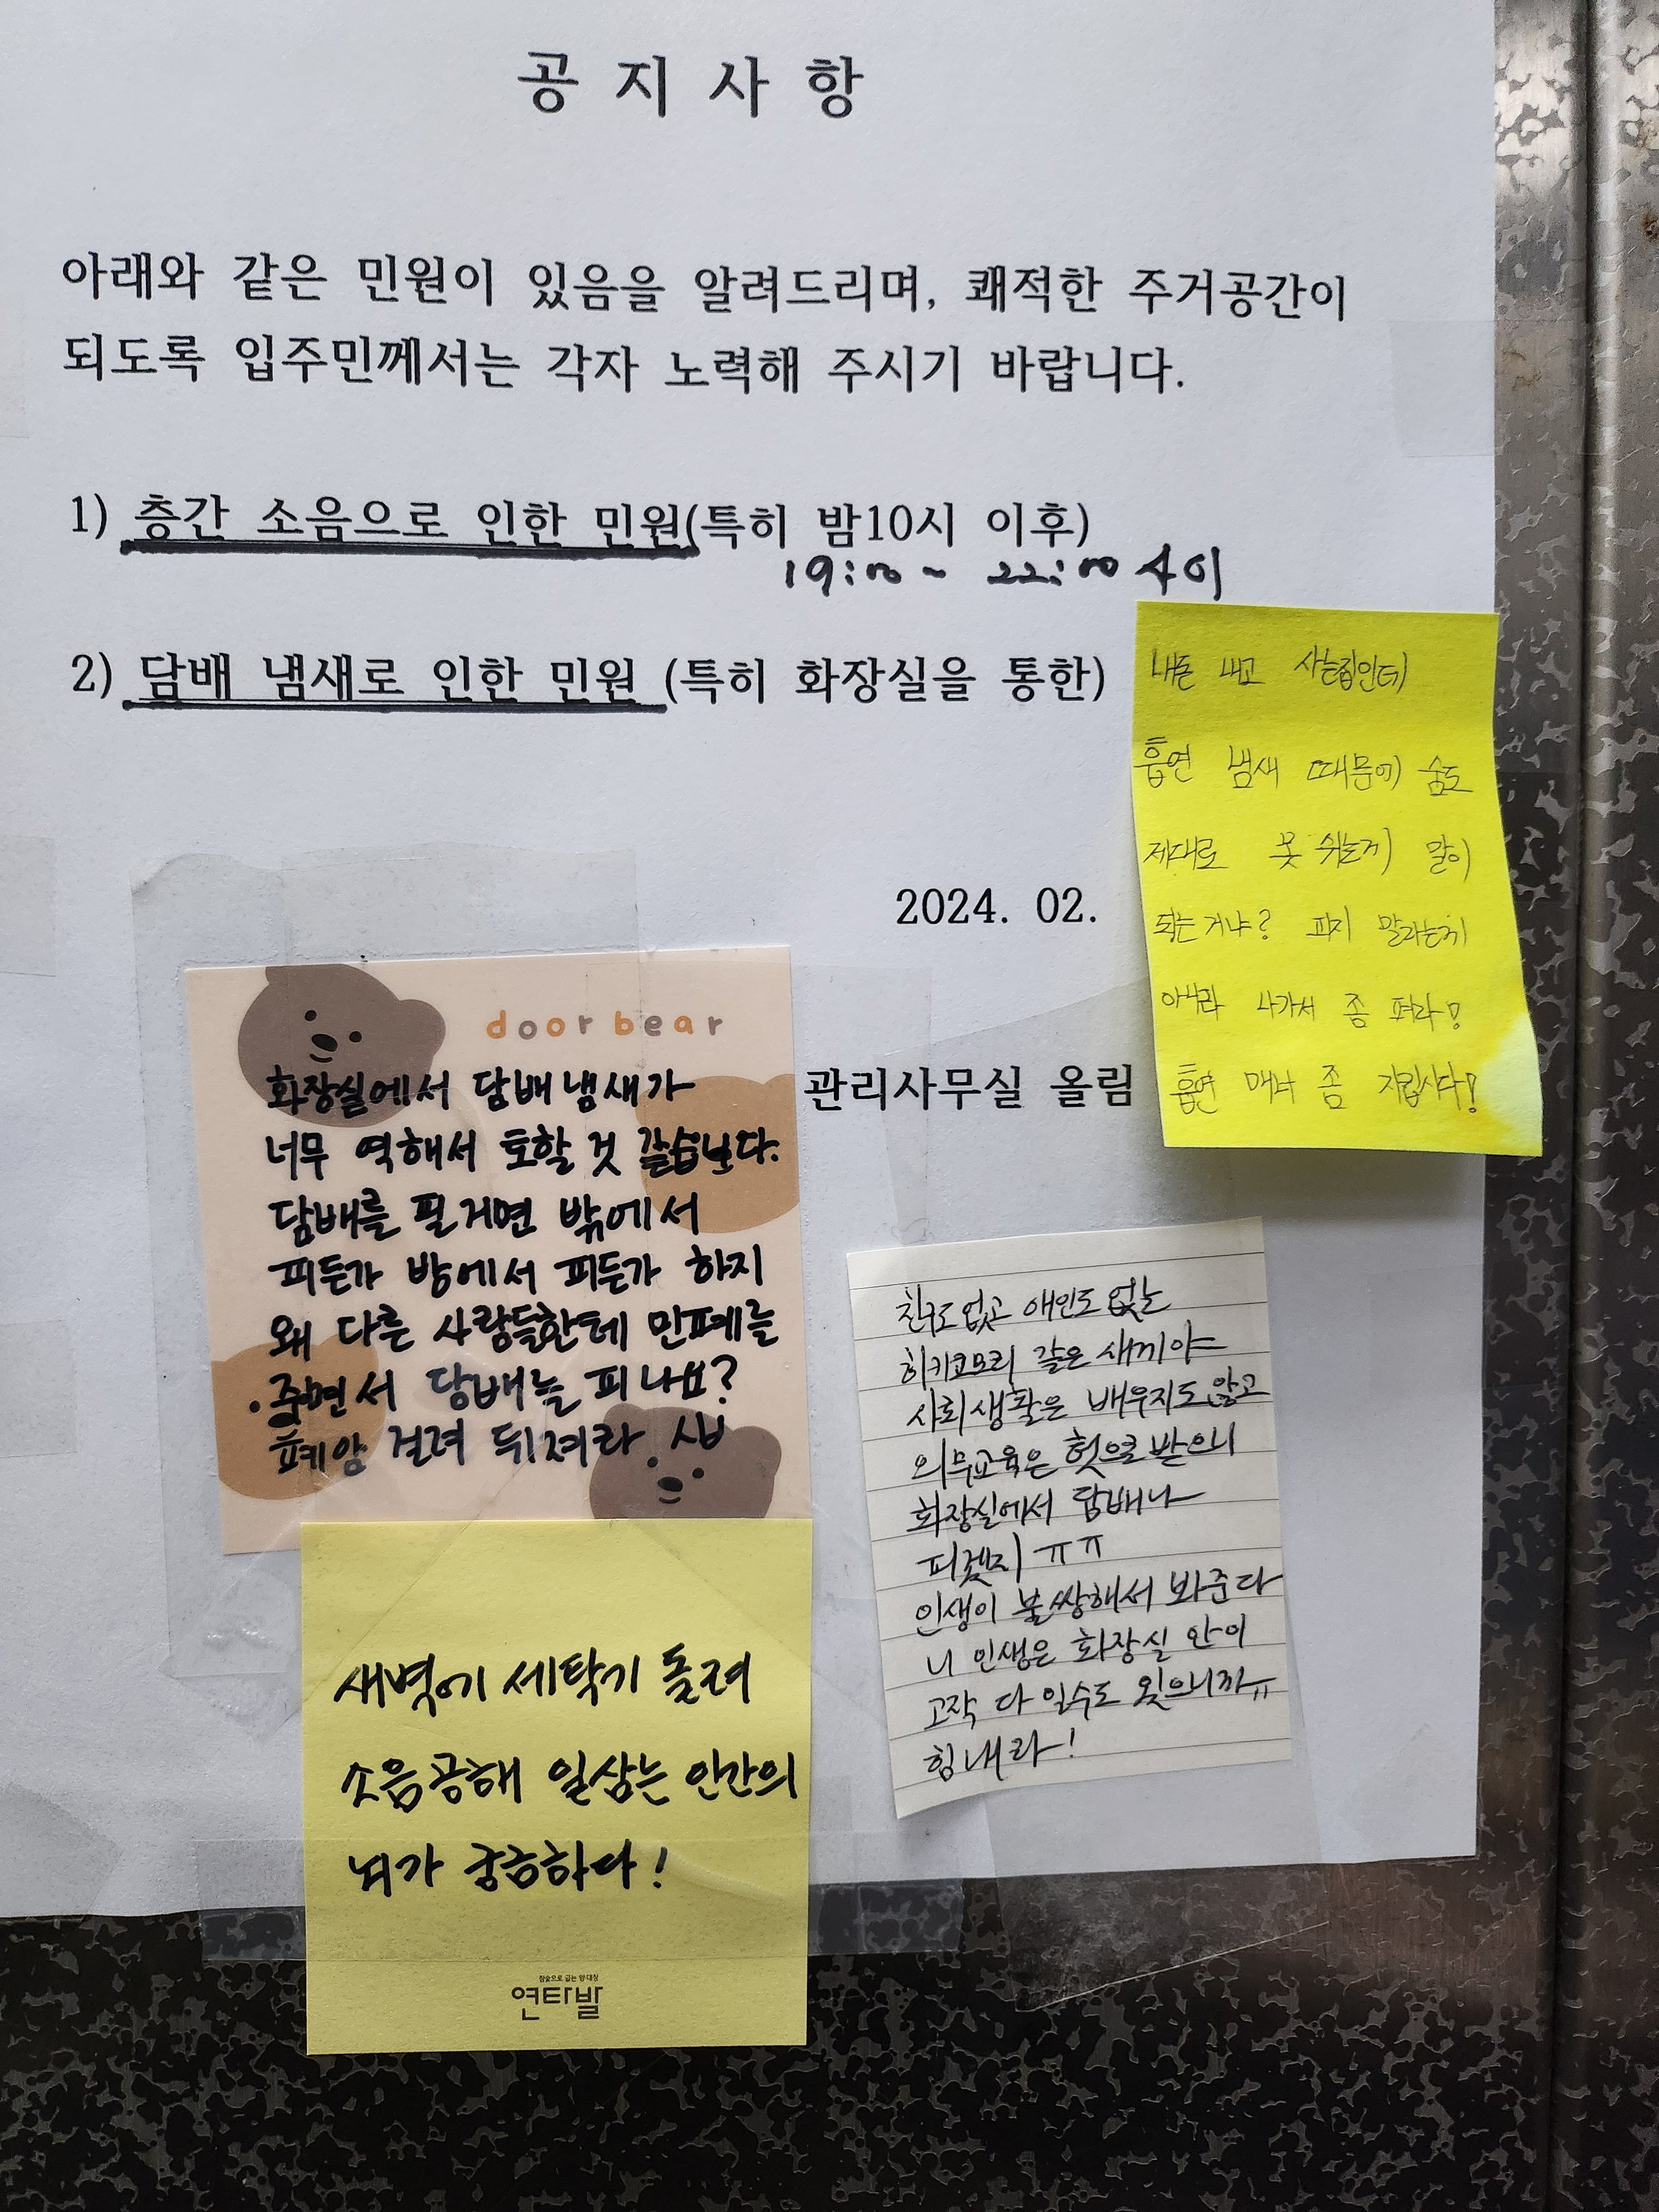 공지사항
아래와 같은 민원이 있음을 알려드리며, 쾌적한 주거공간이
되도록 입주민께서는 각자 노력해 주시기 바랍니다.
1) 층간 소음으로 인한 민원(특히 밤10시 이후)
19:00 ~ 22:00 사이
2) 담배 냄새로 인한 민원 (특히 화장실을 통한)
2024. 02.
관리사무실 올림
내돈 내고 사는집인데
흡연 냄새 때문에 숨도
제대로 못 쉬는게 말이
되는거냐? 피지 말라는게
아니라 나가서 좀 펴라!
흡연 매너 좀 지킵시다!
doorbear
화장실에서 담배냄새가
너무 역해서 토할 것 같습니다.
담배를 필거면 밖에서
피든가 방에서 피든가 하지
왜 다른 사람들한테 민폐를
주면서 담배를 피나요?
폐암 걸려 뒤져라 시
친구도없고 애인도 없는
히키코모리 같은 새끼야
사회생활은 배우지도 않고
의무교육은 헛으로 받으니
화장실에서 담배나
피겠지 ㅠㅠ
인생이 불쌍해서 봐준다
니 인생은 화장실 안이
고작 다 일수도 있으니까ㅠ
힘내라!
새벽에 세탁기 돌려
소음공해 일삼는 인간의
뇌가 궁금하다!
참숯으로 굽는 양·대창
연타발